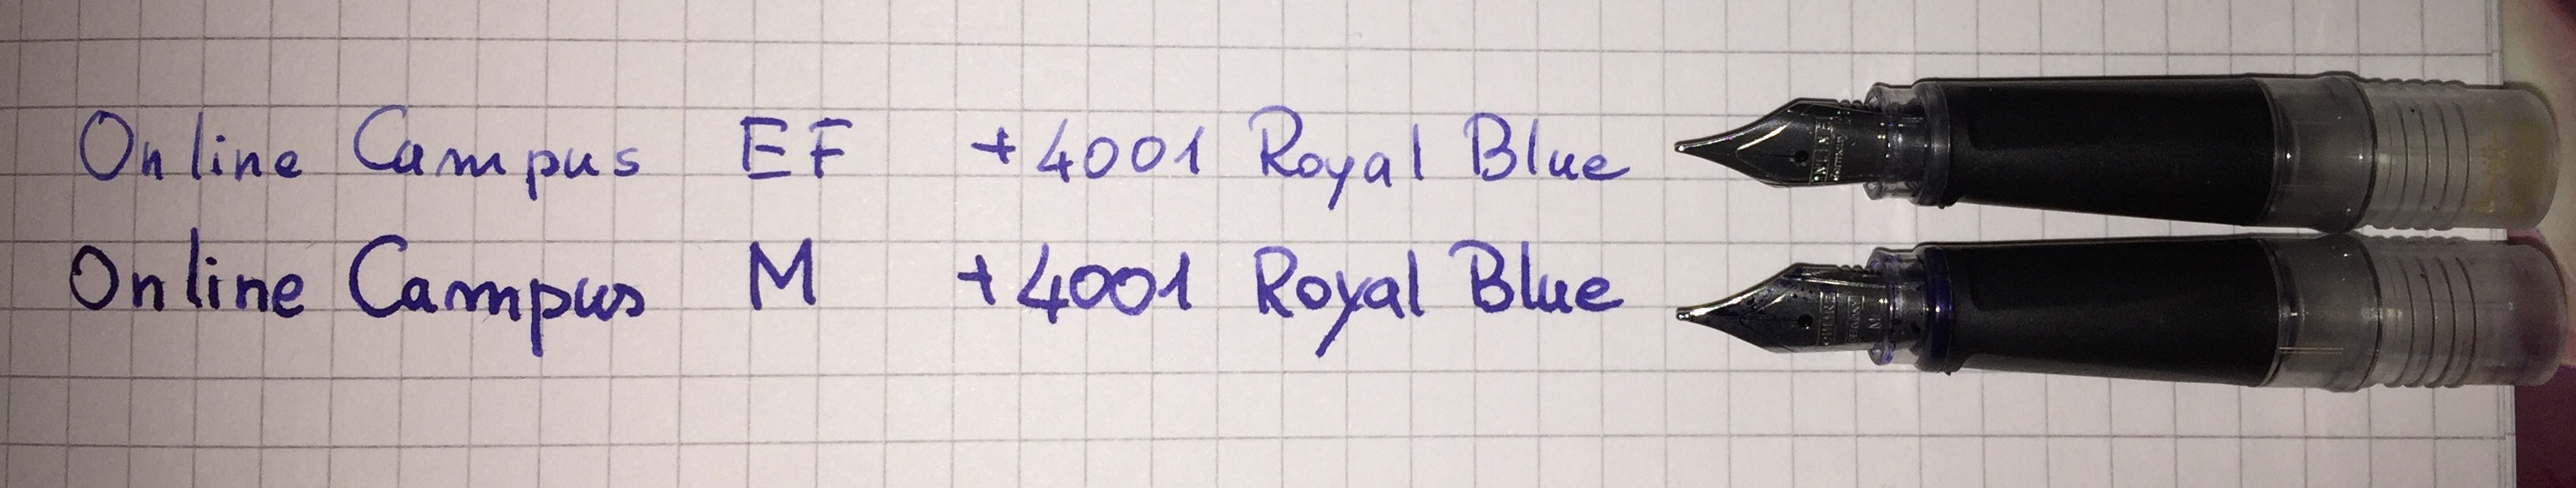 Online Campus EF +4001 Royal Blue
Online Campus M +4001 Royal Blue